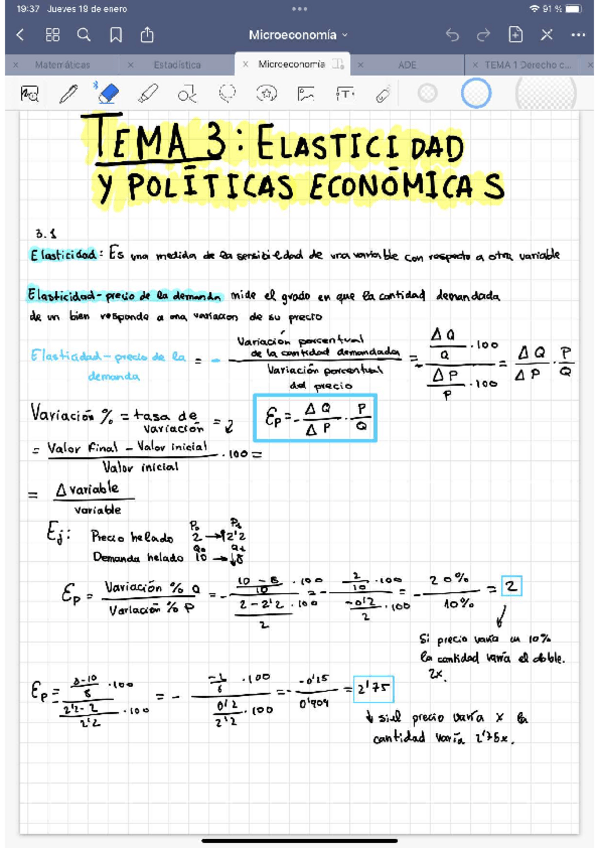 19:37 Jueves 18 de enero
91 %
Microeconomía
Matemáticas
Estadística
Microeconomía
ADE
TEMA 1 Derecho c...
TEMA 3: ELASTICIDAD
Y POLÍTICAS ECONÓMICAS
3.1
Elasticidad: Es una medida de la sensibilidad de una variable con respecto a otra variable
Elasticidad-precio de la demanda mide el grado en que la cantidad demandada
de un bien responde a una variación de su precio
Elasticidad-precio de la demanda = - Variación porcentual de la cantidad demandada / Variación porcentual del precio = - (ΔQ / Q · 100) / (ΔP / P · 100) = ΔQ / ΔP · P / Q
Variación % = tasa de variación =
Ep = - ΔQ / ΔP · P / Q
= Valor final - Valor inicial / Valor inicial · 100 =
= Δ variable / variable
Ej: Precio helado P₀ 2 → P₁ ↑2'2
Demanda helado Q₀ 10 → Q₁ ↓8
Ep = Variación % Q / Variación % P = - (10 - 8 / 10 · 100) / (2 - 2'2 / 2 · 100) = - (2 / 10 · 100) / (-0'2 / 2 · 100) = - 20% / 10% = 2
Si precio varía un 10%
la cantidad varía el doble.
2x.
Ep = (8-10 / 8 · 100) / (2'2 - 2 / 2'2 · 100) = - (/ 8 · 100) / (0'2 / 2'2 · 100) = - / 0'909 = 2'75
↓ si el precio varía x la
cantidad varía 2'75x.